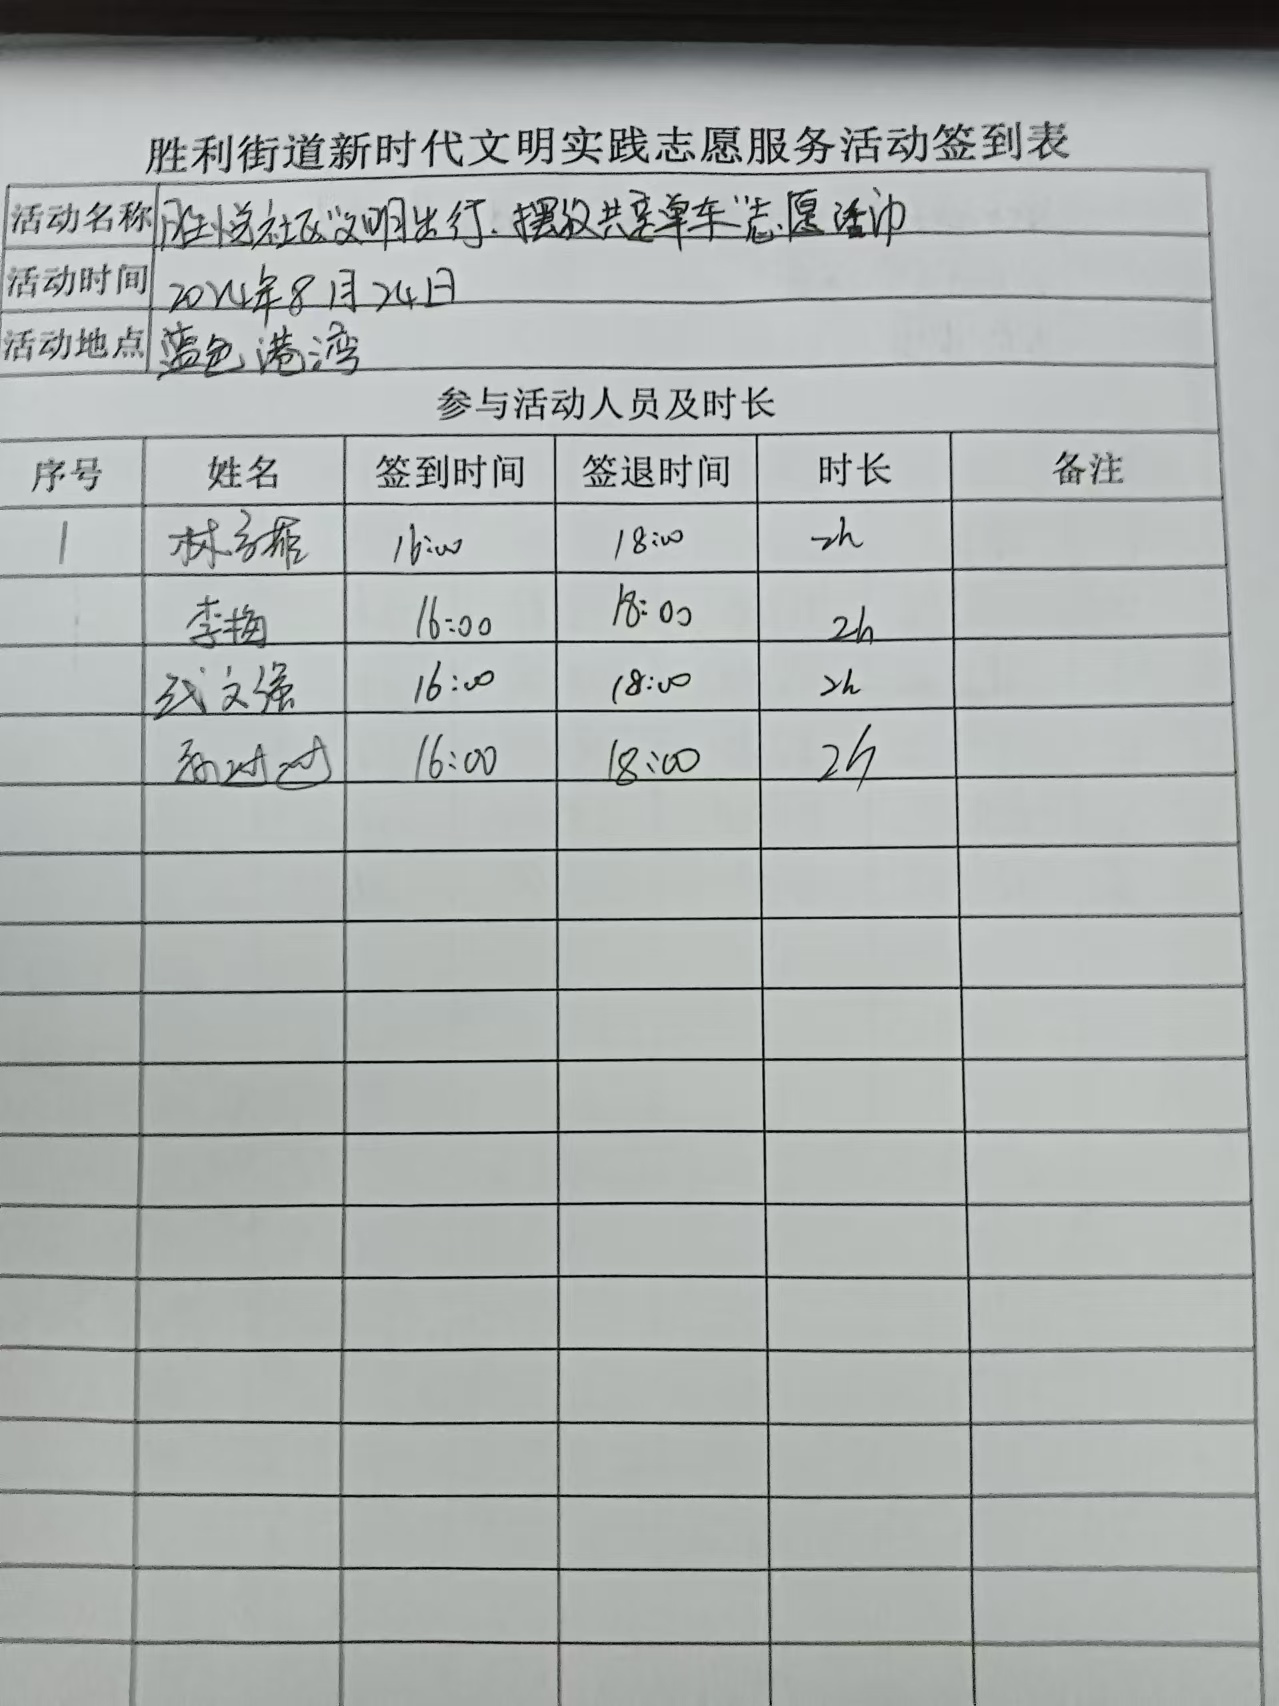 胜利街道新时代文明实践志愿服务活动签到表
活动名称 胜悦社区"文明出行、摆放共享单车"志愿活动
活动时间 2024年8月24日
活动地点 蓝色港湾
参与活动人员及时长
序号 姓名 签到时间 签退时间 时长 备注
1 林 16:00 18:00 2h
李梅 16:00 18:00 2h
文强 16:00 18:00 2h
16:00 18:00 2h